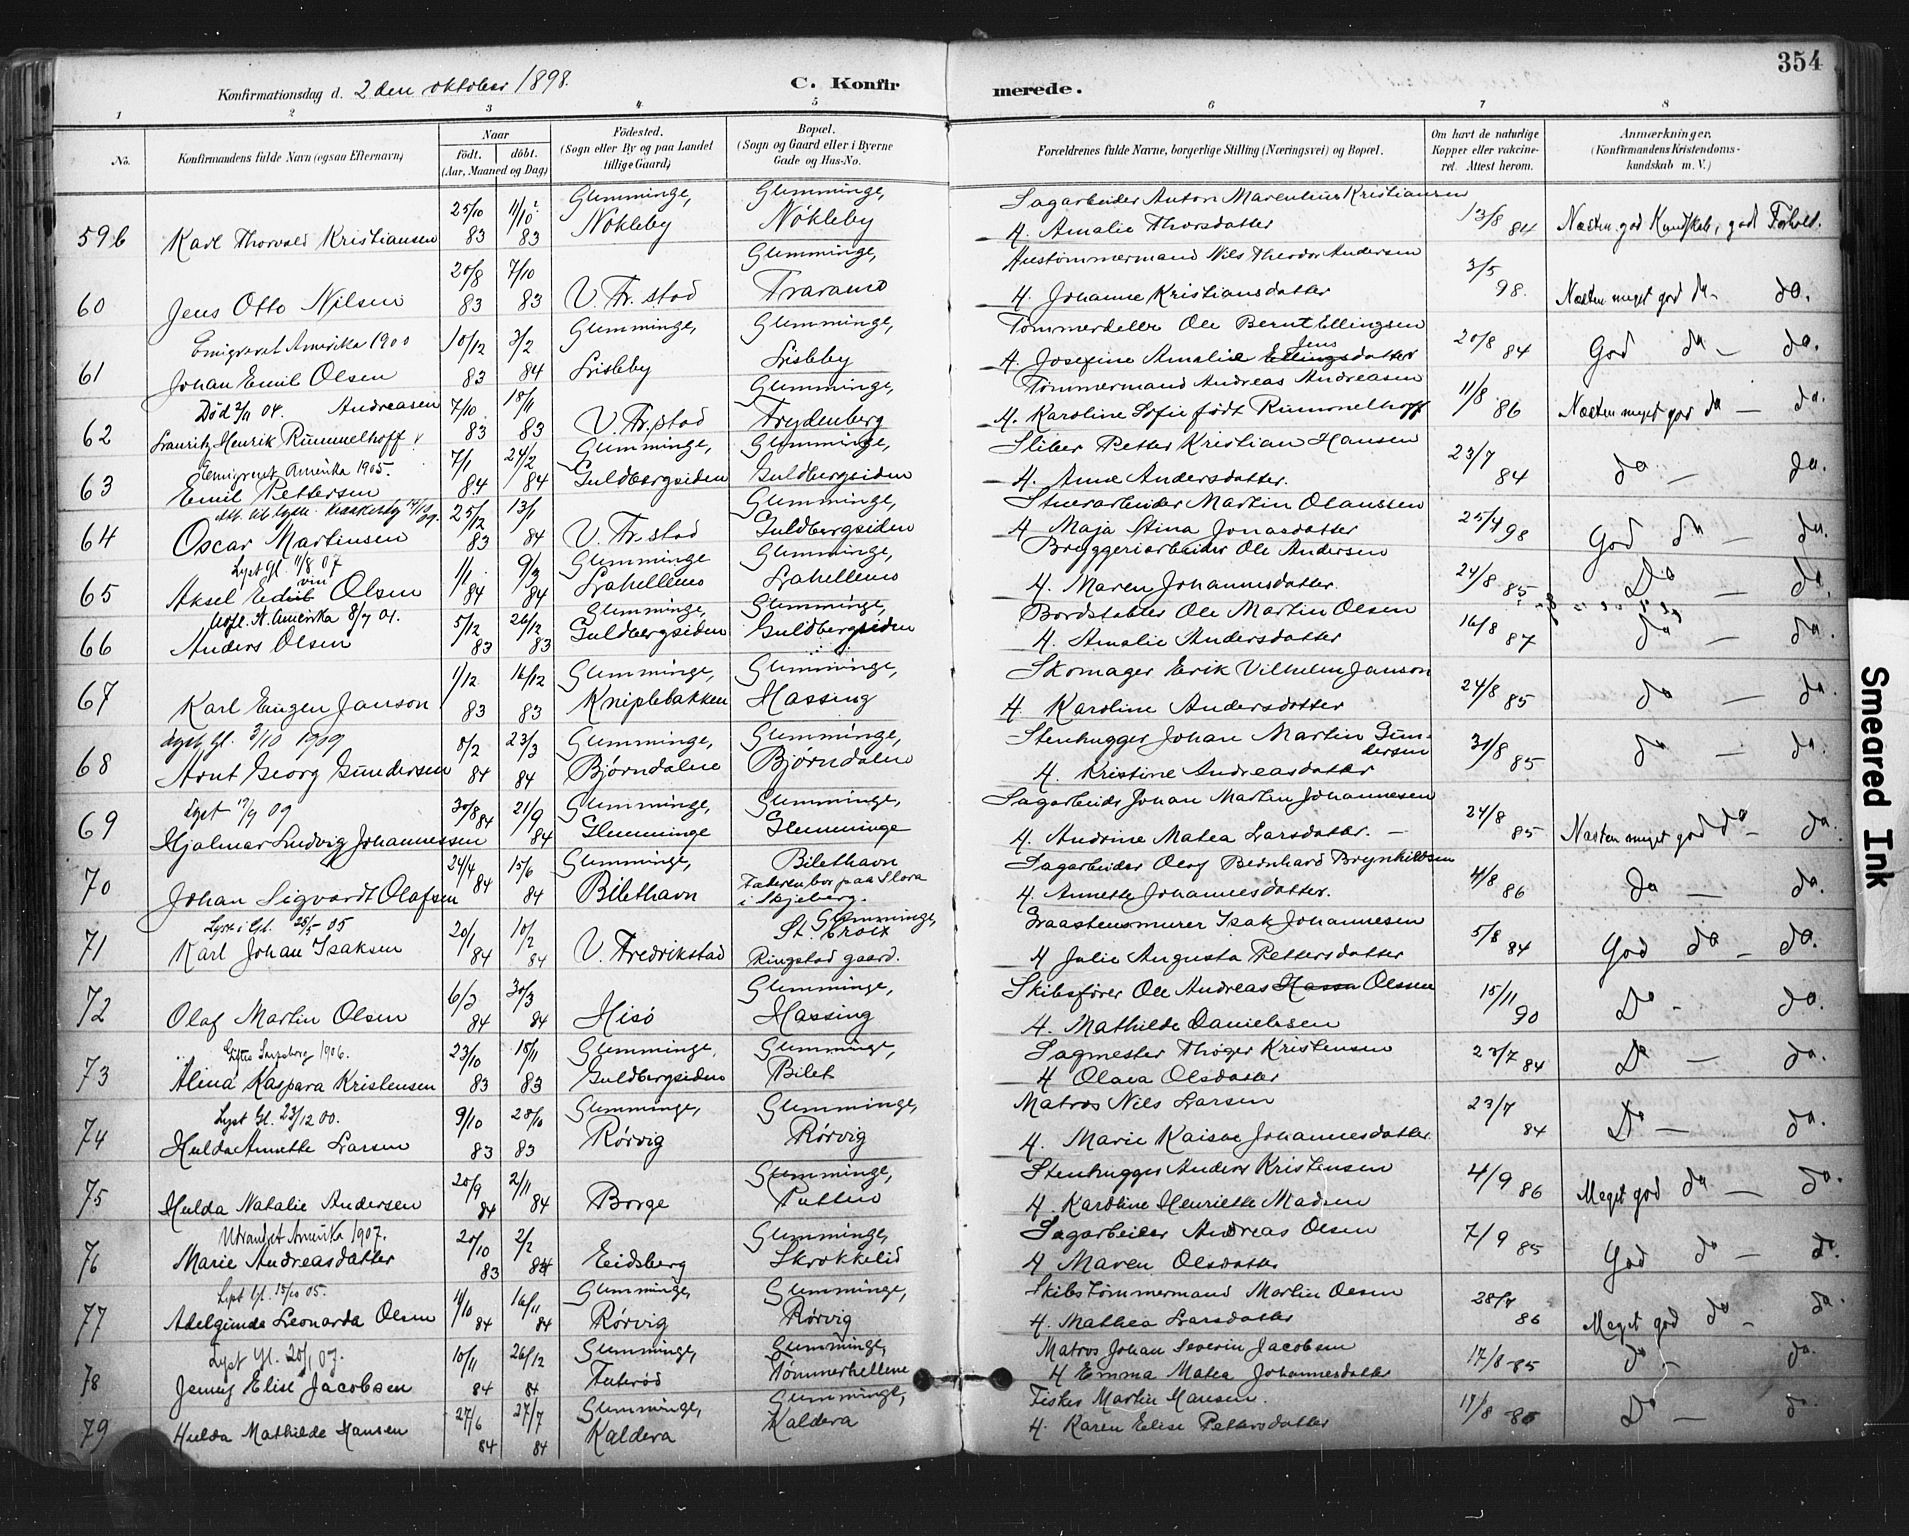 354
Konfirmationsdag d. 2 den oktober 1898. C. Konfirmerede.
1 2 3 4 5 6 7 8
No. Konfirmandens fulde Navn (ogsaa Efternavn) Naar født. døbt. (Aar, Maaned og Dag) Födested. (Sogn eller By og paa Landet tillige Gaard) Bopæl. (Sogn og Gaard eller i Byerne Gade og Hus-No. Forældrenes fulde Navne, borgerlige Stilling (Næringsvei) og Bopæl. Om havt de naturlige Kopper eller vakcineret. Attest herom. Anmærkninger. (Konfirmandens Kristendomskundskab m. V.)
59b Karl Thorvald Kristiansen 25/10 83 11/10 83 Glemminge, Nökleby Glemminge, Nökleby Sagarbeider Anton Marentius Kristiansen H. Amalie Thorsdatter 13/8 84 Næsten god Kundskab, god Forhold.
60 Jens Otto Nilsen 20/8 83 7/10 83 V. Fr.stad Glemminge, Traraen Hustømmermand Nils Theodor Andersen H. Johanne Kristiansdatter 3/5 98. Næsten meget god do - do.
61 Emigreret Amerika 1900 Johan Emil Olsen 10/12 83 3/2 84 Glemminge, Lisleby Glemminge, Lisleby Tømmerdeller Ole Bernt Ellingsen H. Josefine Amalie Jensdatter 20/8 84 God do - do.
62 Død 2/11 04. Andreasen Lauritz Henrik Rummelhoff 7/10 83 18/11 83 V. Fr.stad Glemminge, Frydenberg Tømmermand Andreas Andreasen H. Karoline Sofie født Rummelhoff 11/8 86 Næsten meget god do - do.
63 Emigreret Amerika 1905. Emil Pettersen 7/1 84 24/2 84 Glemminge, Guldbergsiden Glemminge, Guldbergsiden Sliber Petter Kristian Hansen H. Anne Andersdatter. 23/7 84 do - do.
64 Oscar Martinsen 25/12 83 13/1 84 V. Fr.stad Glemminge, Guldbergsiden Stuerarbeider Martin Olaussen H. Maja Stina Jonasdatter 25/4 98 God do - do.
65 Lyst Gl. 11/8 07 Aksel Edvin Olsen 1/1 84 9/3 84 Glemminge Lahellen Glemminge, Lahellen Bryggeriarbeider Ole Andersen H. Maren Johannesdatter. 24/8 85 Do - do.
66 N. Amerika 8/7 01. Anders Olsen 5/12 83 26/12 83 Glemminge, Guldbergsiden Glemminge, Guldbergsiden Bordstabler Ole Martin Olsen H. Amalie Andersdatter 16/8 87 do - do.
67 Karl Eugen Janson 1/12 83 16/12 83 Glemminge, Kniplebakken Glemminge, Hassing Skomager Erik Vilhelm Janson H. Karoline Andersdatter 24/8 85 do - do.
68 Lyst Gl. 3/10 1909 Arnt Georg Gundersen 8/2 84 23/3 84 Glemminge, Bjørndalen Glemminge, Bjørndalen Stenhugger Johan Martin Gundersen H. Kristine Andreasdatter 31/8 85 do - do.
69 Lyst 09 Hjalmar Ludvig Johannessen 30/8 84 21/9 84 Glemminge, Glemminge Glemminge, Glemminge Sagarbeider Johan Martin Johannesen H. Andrine Matea Larsdatter. - 24/8 85 Næsten meget god do - do.
70 Johan Sigvardt Olafsen 24/4 84 15/6 84 Glemminge, Bilethavn Bilethavn Faderen bor paa Stora i Skjeberg. Sagarbeider Olaf Bernhard Brynhildsen H. Annette Johannesdatter. 4/8 86 do - do.
71 Lyst i Gl. 28/5 05 Karl Johan Isaksen 20/1 84 10/2 84 V. Fredrikstad Glemminge, St. Croix Ringstad gaard. Graastensmurer Isak Johannesen H. Julie Augusta Pettersdatter 5/8 84 God do - do.
72 Olaf Martin Olsen 6/2 84 30/3 84 Hisö Glemminge, Hassing Skibsfører Ole Andreas Olssen H. Mathilde Danielsen 15/11 90 Do - do.
73 Gifte Sarpsborg 1906. Alina Kaspara Kristensen 23/10 83 15/11 83 Glemminge, Guldbergsiden Glemminge, Bilet Sagmester Thøger Kristensen H. Olava Olsdatter 23/7 84 Do - do.
74 Lyst Gl. 23/12 00. Hulda Annette Larsen 9/10 83 28/10 83 Glemminge, Rörvig Glemminge, Rörvig Matros Nils Larsen H. Marie Kaisa Johannesdatter. 23/7 84 Do - do.
75 Hulda Natalie Andersen 20/9 84 2/11 84 Borge Glemminge, Putten Stenhugger Anders Kristensen H. Karoline Henriette Madsen 4/9 86 Meget god do - do.
76 Udvandret Amerika 1907. Marie Andreasdatter 20/10 83 2/2 84 Eidsberg Glemminge, Skrokkelid Sagarbeider Andreas Olsen H. Maren Olsdatter 7/9 85 God do - do.
77 Lyst Gl. 15/10 05. Adelgunda Leonarda Olsen 4/10 84 16/11 84 Glemminge, Rörvig Glemminge, Rörvig Skibstømmermand Martin Olsen H. Mathea Larsdatter 28/7 86 Meget god do - do.
78 Lyst Gl. 20/1 07. Jenny Elise Jacobsen 10/11 84 26/12 84 Glemminge, Futerød Glemminge, Tømmerhellene Matros Johan Severin Jacobsen H Emma Matea Johannesdatter 17/8 85 do - do.
79 Hulda Mathilde Hansen 27/6 84 27/7 84 Glemminge, Kaldera Glemminge, Kaldera Fisker Martin Hansen. H. Karen Elise Pettersdatter 17/8 85 Do - do.
Smeared Ink